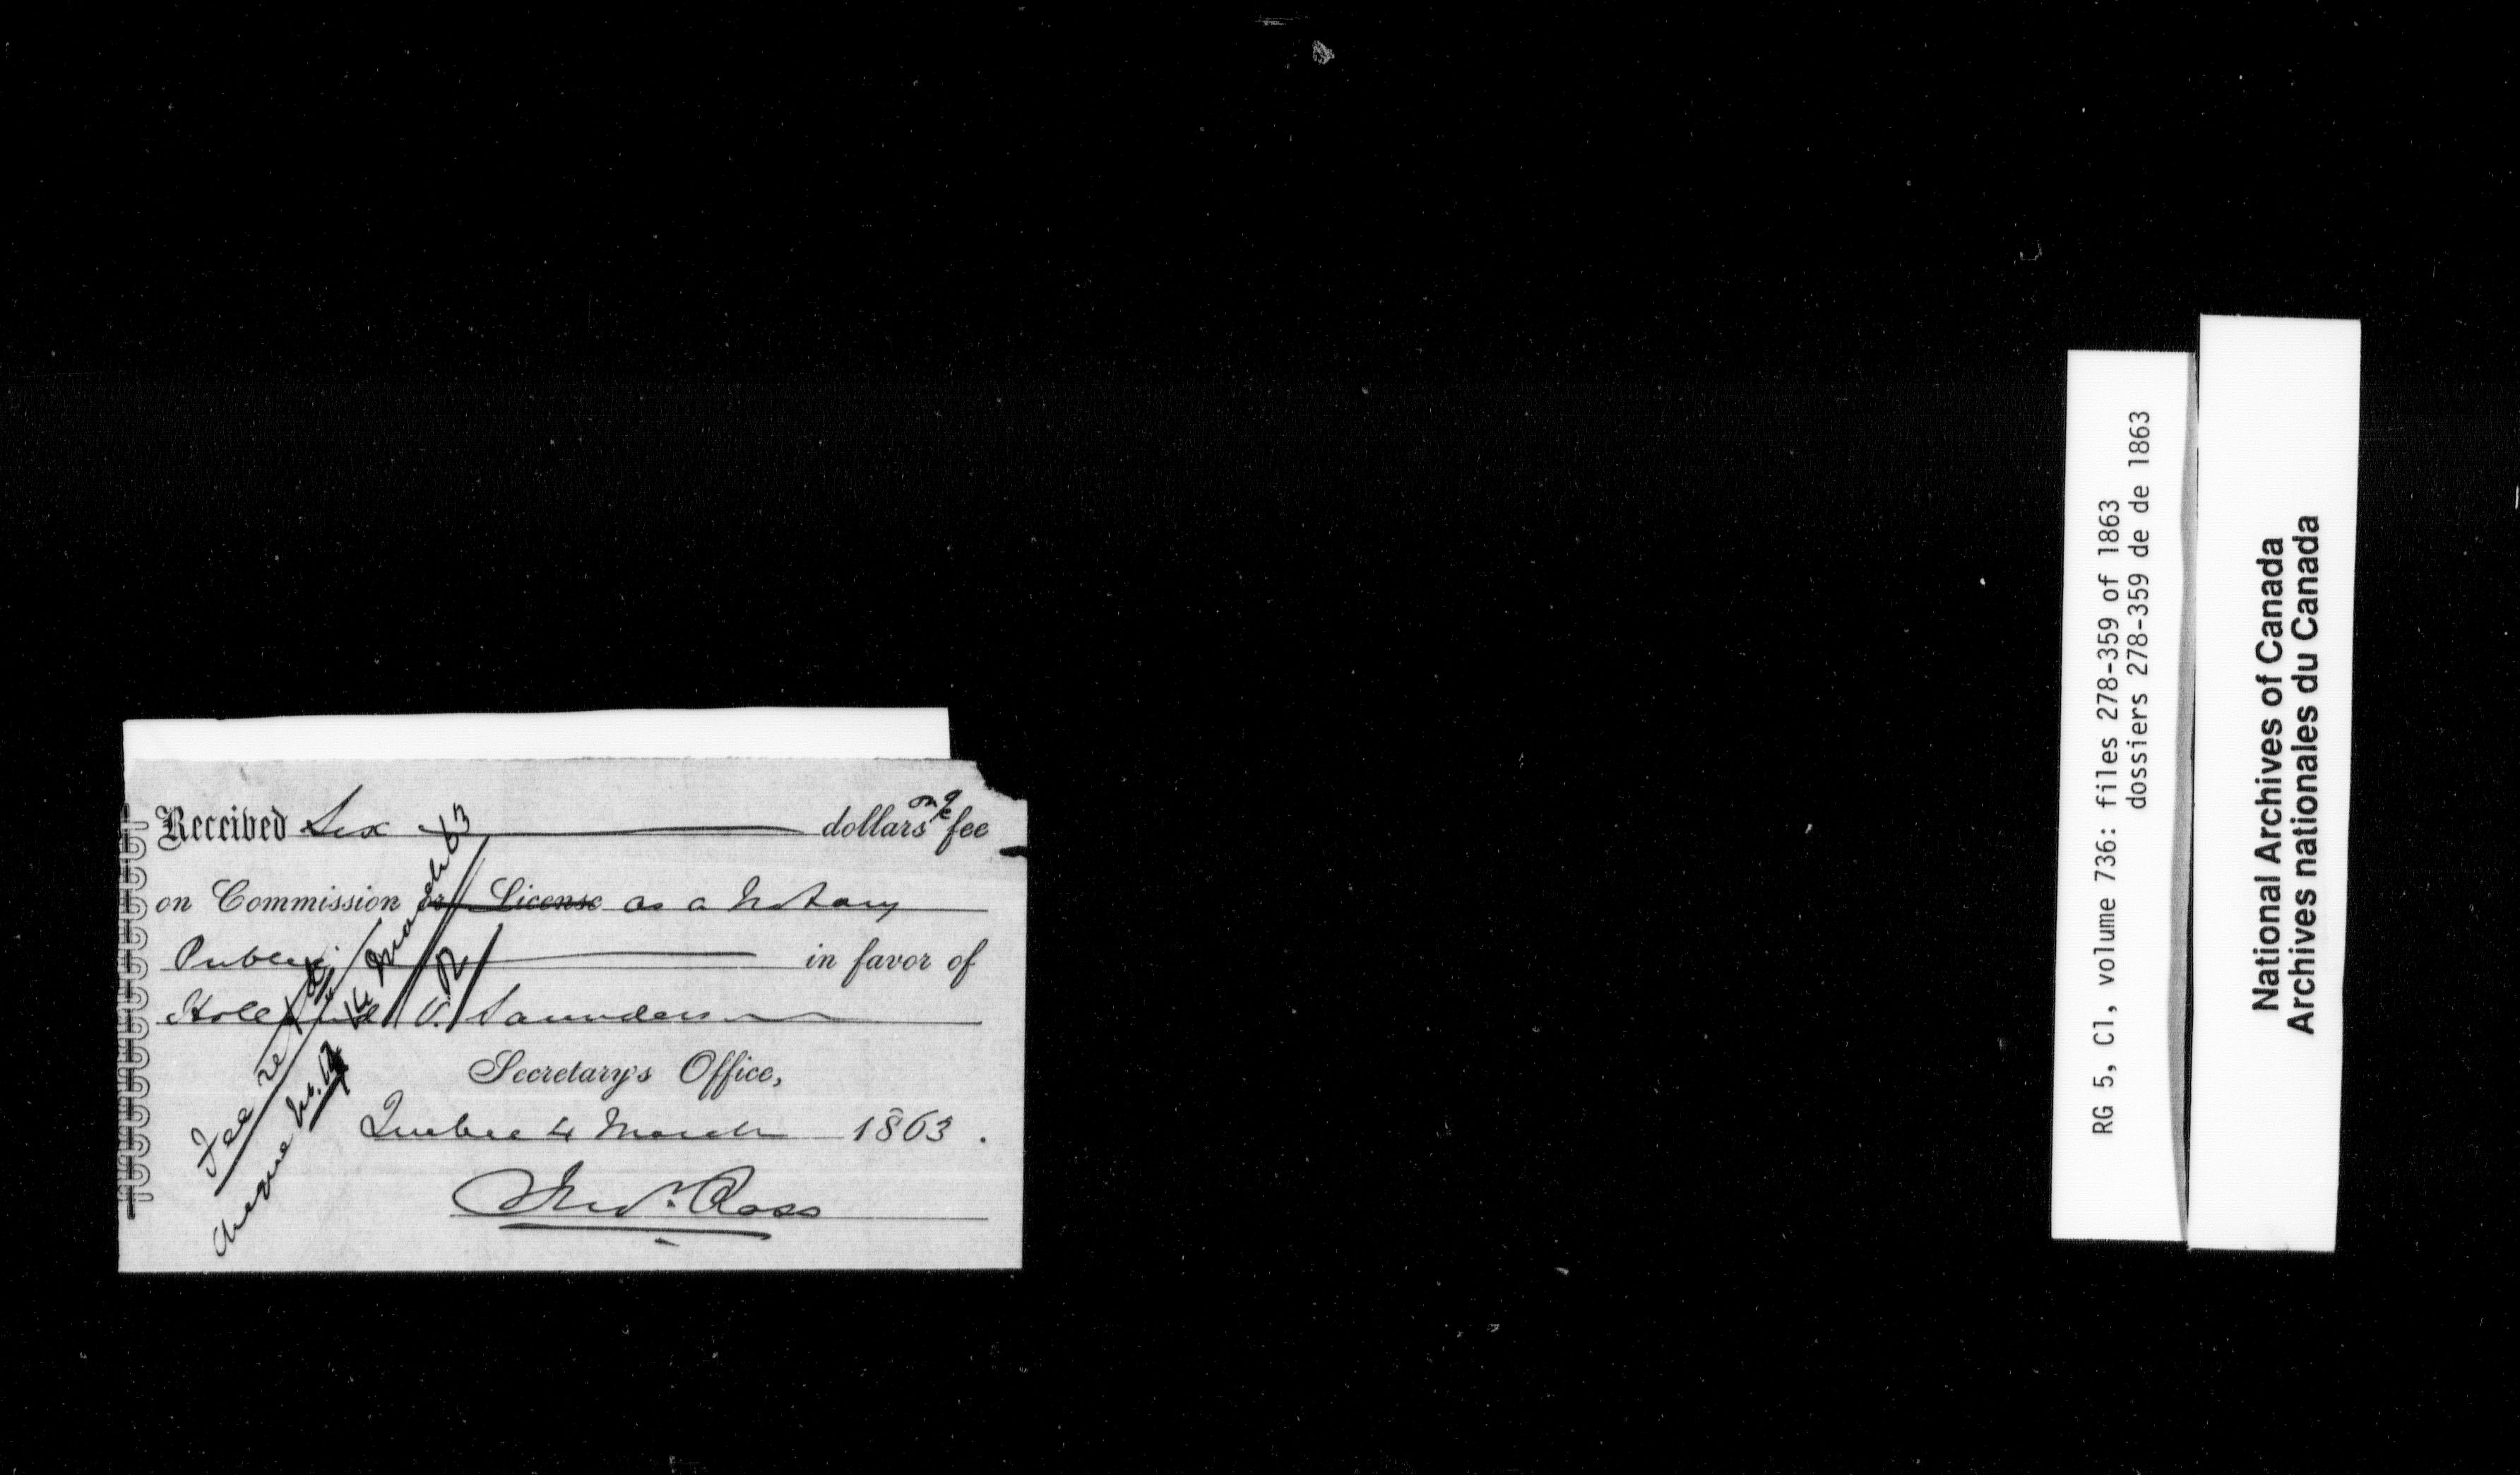 Received Six dollars on a/c fee
on Commission or License as a Notary
Public in favor of
Holland V. Saunders
Secretary's Office,
Quebec 4 March 1863.
Thos. Ross
Fee ret
Cheque No. 14 March 63
RG 5, C1, volume 736: files 278-359 of 1863
dossiers 278-359 de de 1863
National Archives of Canada
Archives nationales du Canada